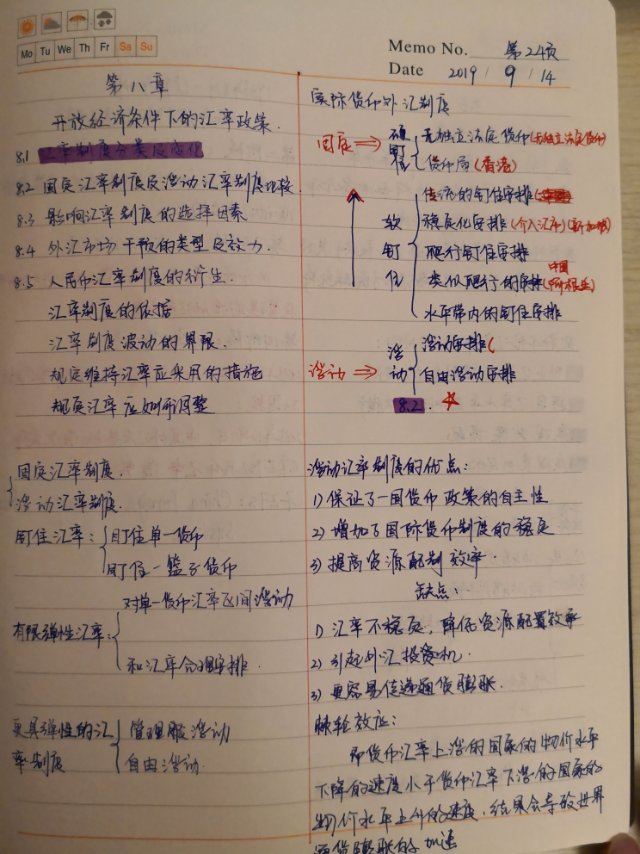 Mo Tu We Th Fr Sa Su
Memo No. 第24页
Date 2019 / 9 / 14
第八章
开放经济条件下的汇率政策.
8.1 汇率制度分类及演化
8.2 固定汇率制度及浮动汇率制度比较
8.3 影响汇率制度的选择因素
8.4 外汇市场干预的类型及效力
8.5 人民币汇率制度的衍生.
汇率制度的依据
汇率制度波动的界限.
规定维持汇率应采用的措施
规定汇率应如何调整
固定汇率制度.
浮动汇率制度.
盯住汇率: 盯住单一货币
盯住一篮子货币
有限弹性汇率: 对单一货币汇率区间浮动
和汇率合理安排.
更具弹性的汇率制度 管理服浮动
自由浮动.
实际货币外汇制度
固定 ⇒ 硬盯住 无独立法定货币(无独立法定货币)
货币局(香港)
软盯住 传统的盯住安排
稳定化安排(介入汇市)(新加坡)
爬行盯住安排
类似爬行的安排(中国
水平带内的盯住安排
浮动 ⇒ 浮动 浮动安排(
自由浮动安排
8.2. ☆
浮动汇率制度的优点:
1) 保证了一国货币政策的自主性
2) 增加了国际货币制度的稳定
3) 提高资源配制效率.
缺点:
1) 汇率不稳定, 降低资源配置效率
2) 引起外汇投资机.
3) 更容易传递通货膨胀.
棘轮效应:
即货币汇率上浮的国家的物价水平
下降的速度小于货币汇率下浮的国家的
物价水平上升的速度, 结果会导致世界
通货膨胀的加速